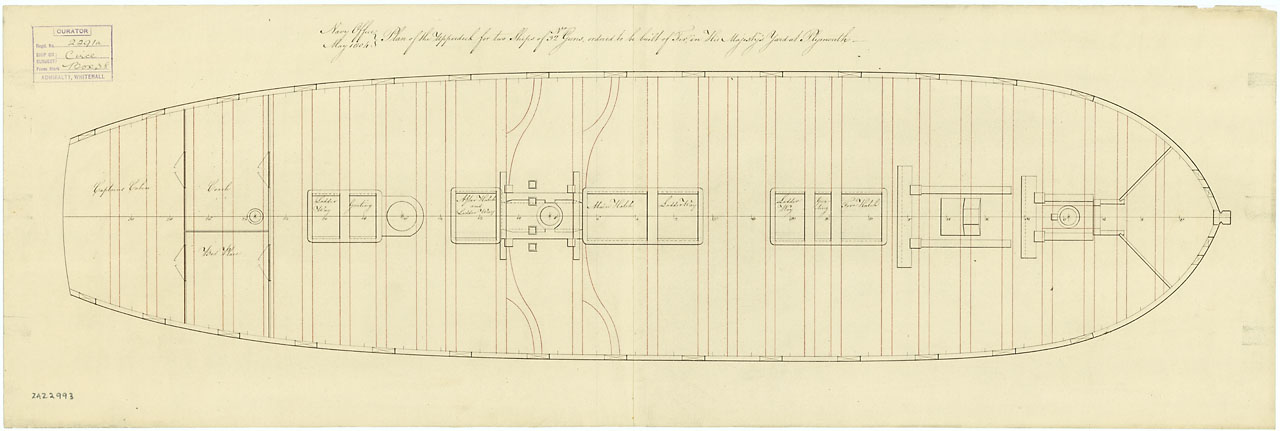 CURATOR
Regd. No. 2291a
SHIP OR SUBJECT Circe
Press Mark Box 38
ADMIRALTY, WHITEHALL
Navy Office
May 1804
Plan of the Upperdeck for two Ships of 32 Guns, ordered to be built of Fir, in His Majesty's Yard at Plymouth
Captains Cabin
Coach
Bed Place
Ladder Way
Grating
After Hatch and Ladder Way
Main Hatch
Ladder Way
Ladder Way
Gra ting
Fore Hatch
2A22993